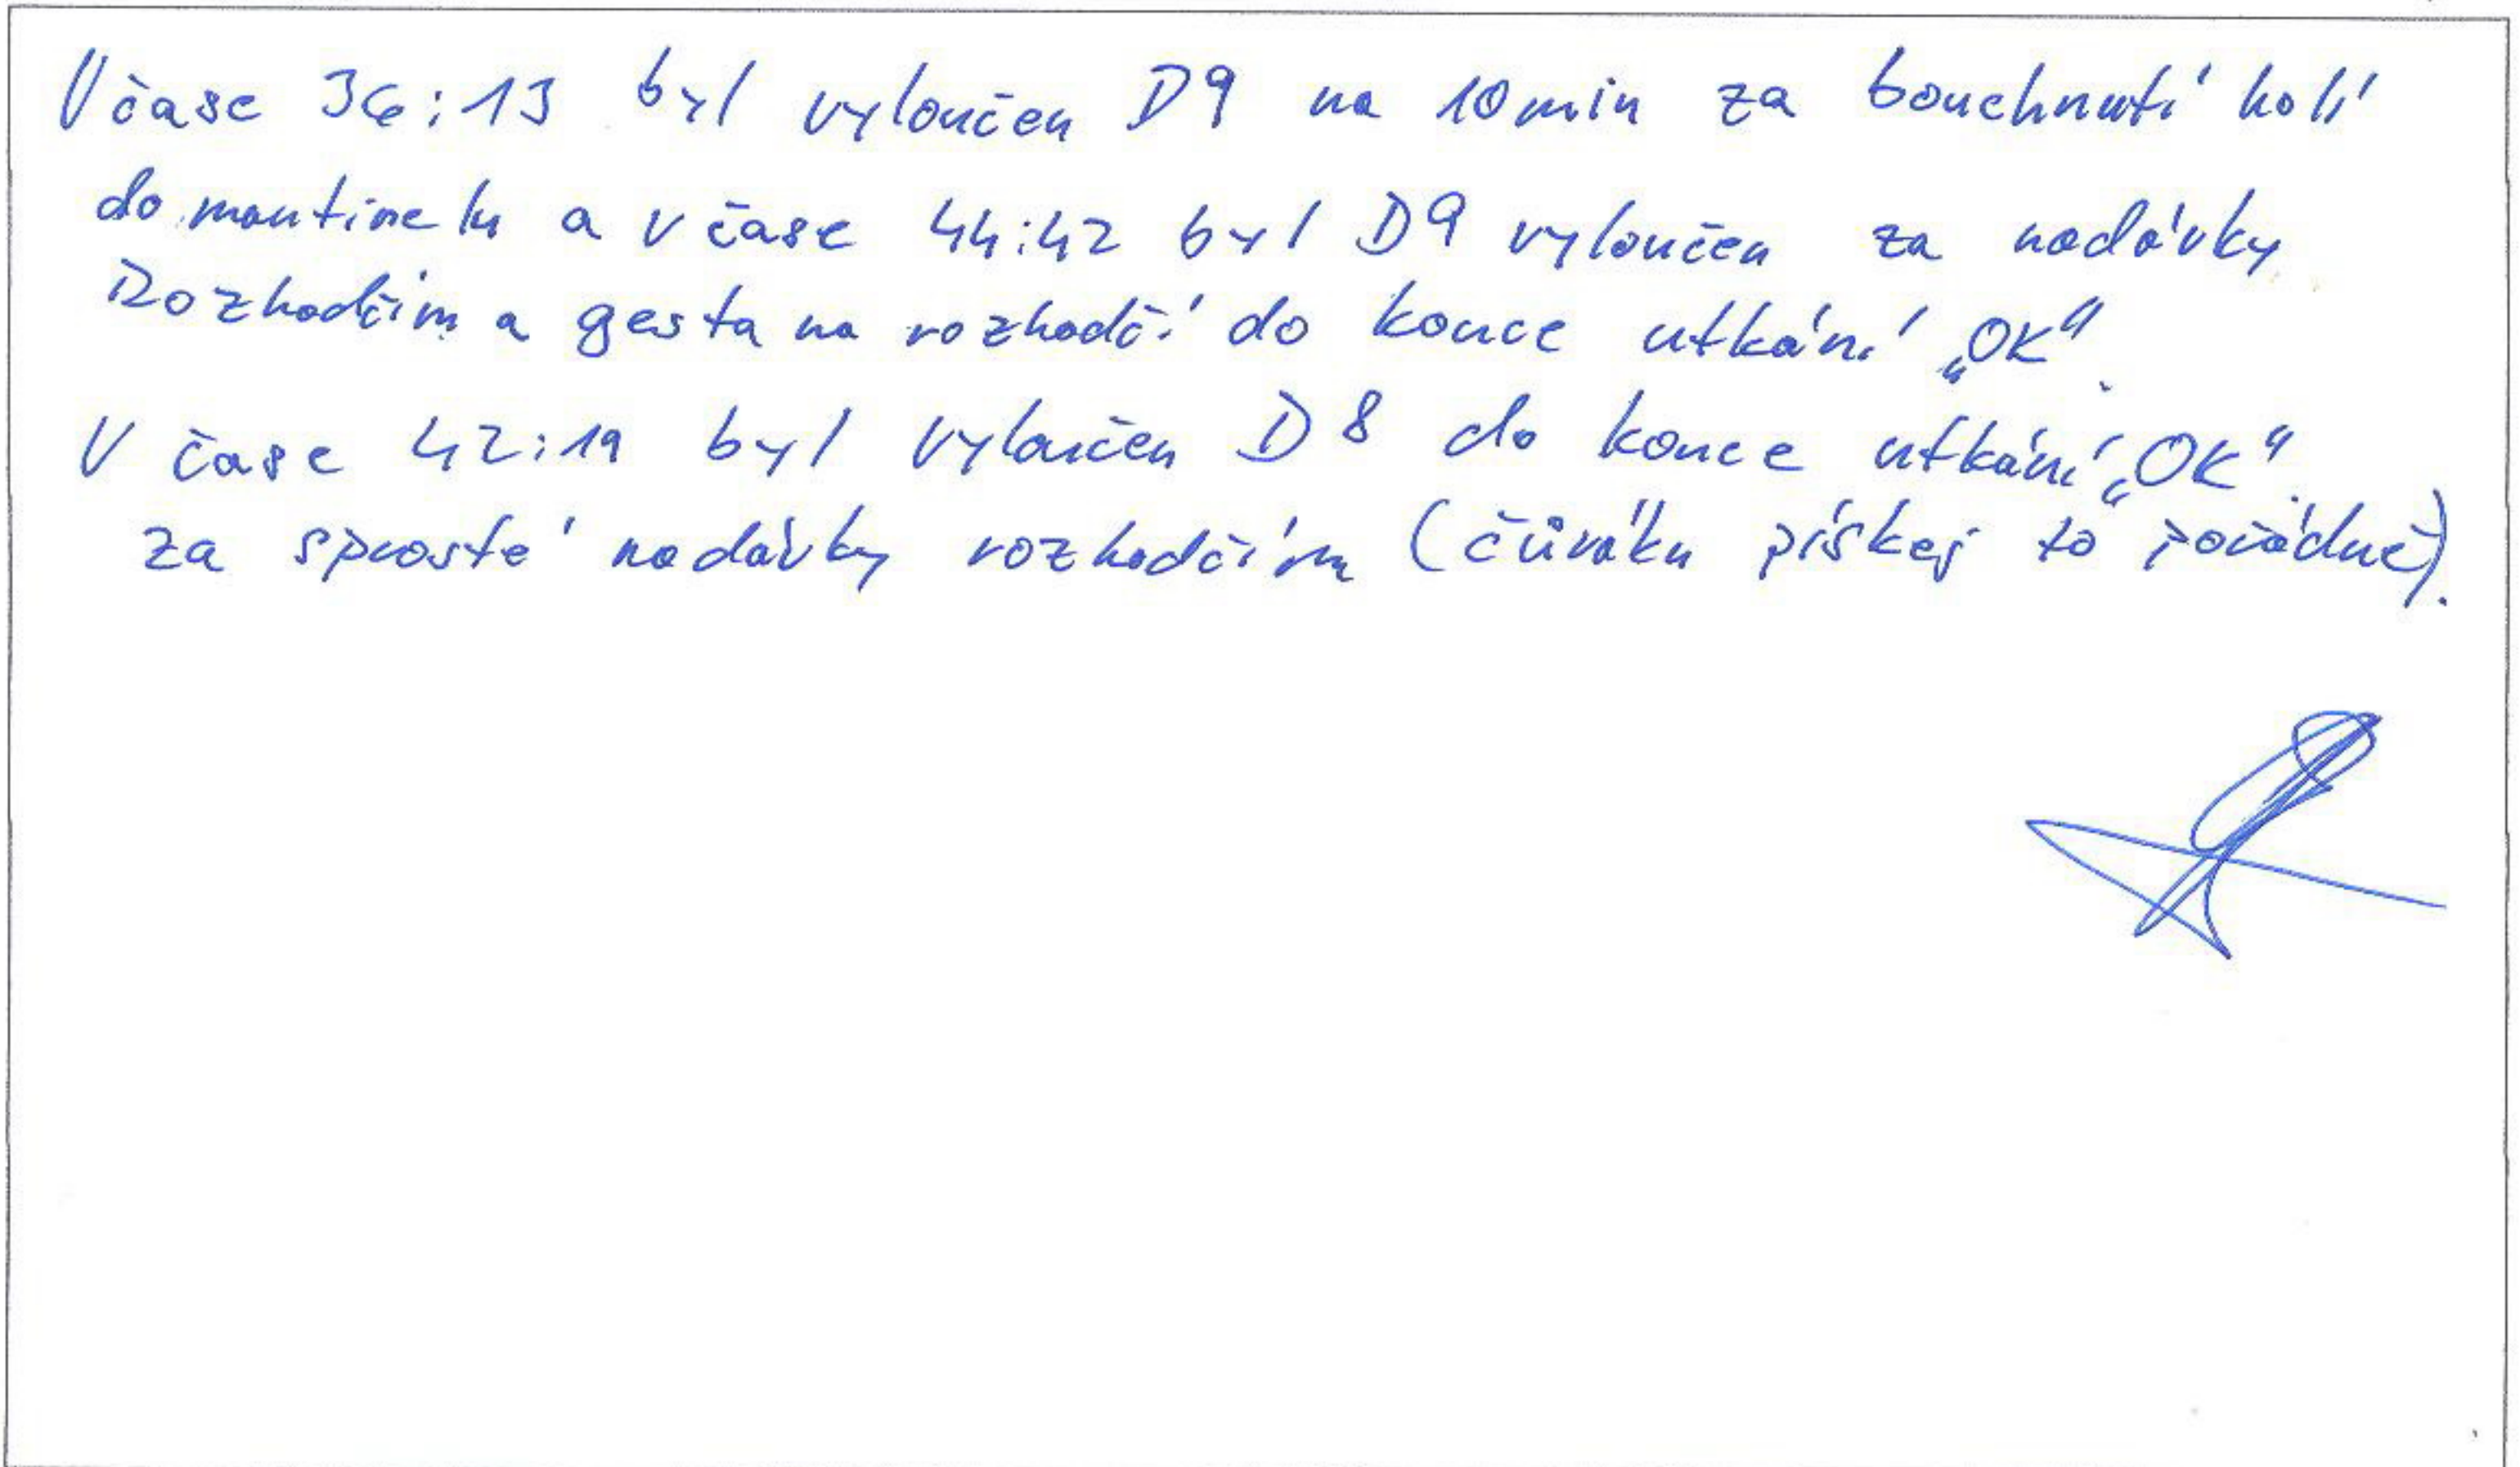 V čase 36:13 byl vyloučen D9 na 10min za bouchnutí holí
do mantinelu a v čase 44:42 byl D9 vyloučen za nadávky
Rozhodčím a gesta na rozhodčí do konce utkání „OK".
V čase 42:19 byl vyloučen D8 do konce utkání „OK".
za sprosté nadávky rozhodčím (čůráku pískej to pořádně).